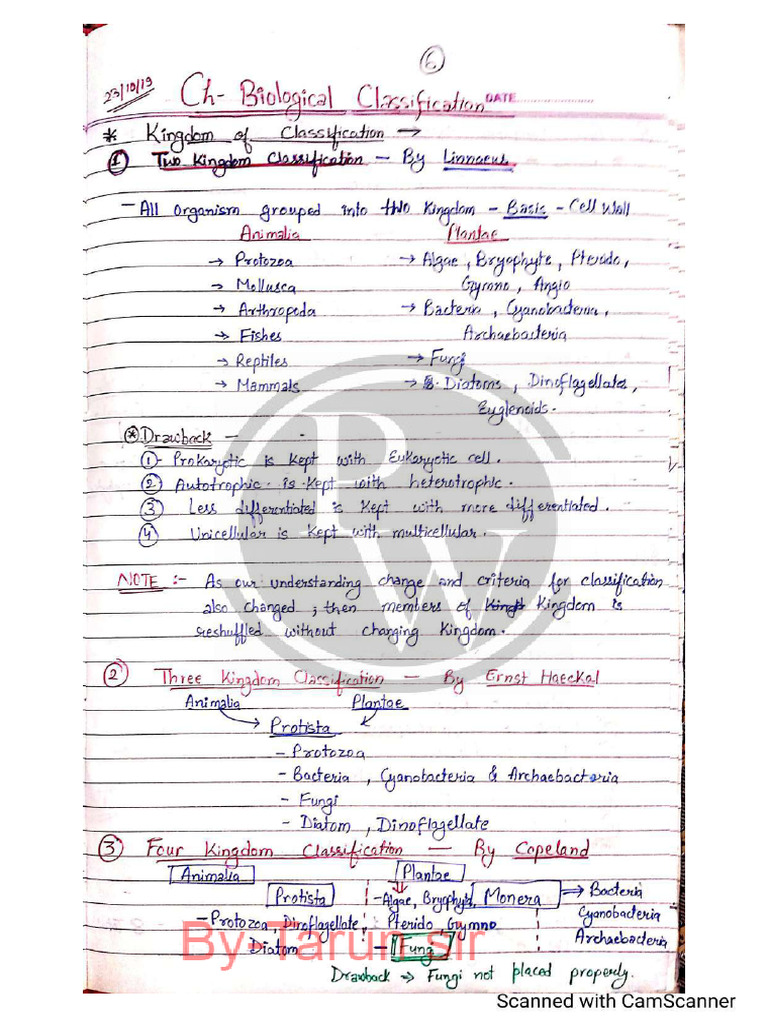 6
23/10/19 Ch- Biological Classification DATE
* Kingdom of Classification →
① Two Kingdom Classification - By Linnaeus
- All organism grouped into two Kingdom - Basis - Cell Wall
Animalia Plantae
→ Protozoa → Algae, Bryophyte, Pterido,
→ Mollusca Gymno, Angio
→ Arthropoda → Bacteria, Cyanobacteria,
→ Fishes Archaebacteria
→ Reptiles → Fungi
→ Mammals → Diatoms, Dinoflagellate,
Euglenoids.
* Drawback -
① Prokaryotic is kept with Eukaryotic cell.
② Autotrophic is kept with heterotrophic.
③ Less differentiated is kept with more differentiated.
④ Unicellular is kept with multicellular.
NOTE :- As our understanding change and criteria for classification
also changed ; then members of Kingdom is
reshuffled without changing Kingdom.
② Three Kingdom Classification - By Ernst Haeckal
Animalia Plantae
Protista
- Protozoa
- Bacteria, Cyanobacteria & Archaebacteria
- Fungi
- Diatom, Dinoflagellate
③ Four Kingdom Classification - By Copeland
Animalia Plantae
Protista - Algae, Bryophyta, Monera ⇒ Bacteria
- Protozoa, Dinoflagellate, Pterido, Gymno Cyanobacteria
Diatom - Fungi Archaebacteria
By Tarun sir
Drawback → Fungi not placed properly.
PW
Scanned with CamScanner